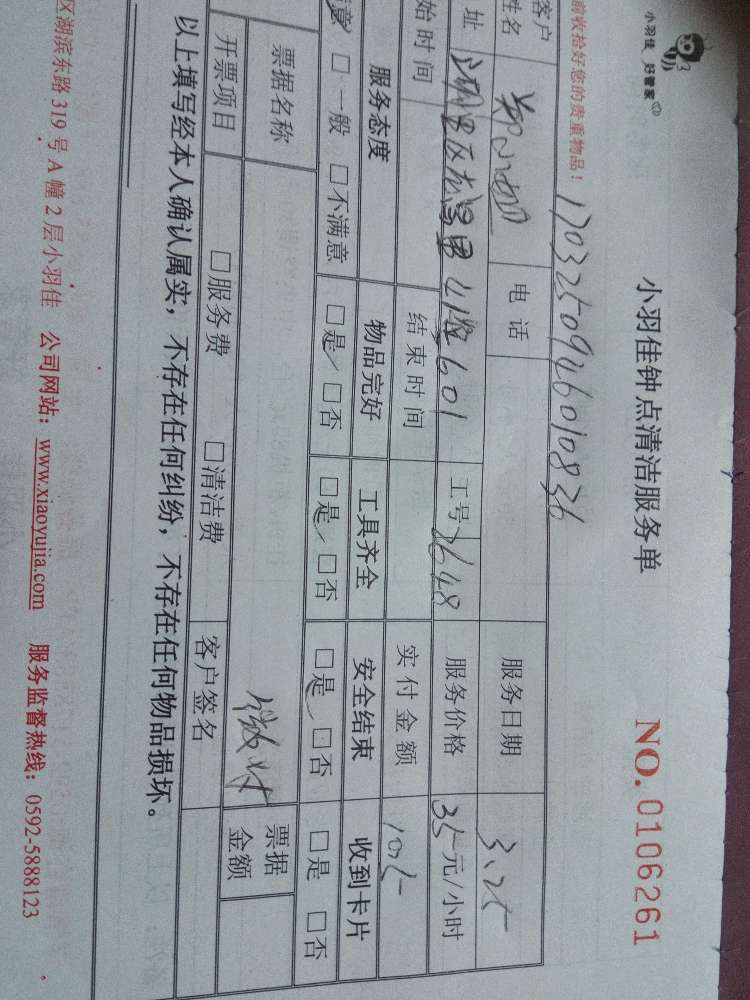 小羽佳 好管家
小羽佳钟点清洁服务单 NO.0106261
前收拾好您的贵重物品！ 170325092601083b
客户姓名 电话 服务日期 3.25
址 601 工号 2648 服务价格 35元/小时
始时间 结束时间 实付金额 105
服务态度 物品完好 工具齐全 安全结束 收到卡片
满意 □一般 □不满意 □是 □否 □是 □否 □是 □否 □是 □否
票据名称 微付 票据金额
开票项目 □服务费 □清洁费 客户签名
以上填写经本人确认属实，不存在任何纠纷，不存在任何物品损坏。
区湖滨东路319号A幢2层小羽佳 公司网站：www.xiaoyujia.com 服务监督热线：0592-5888123